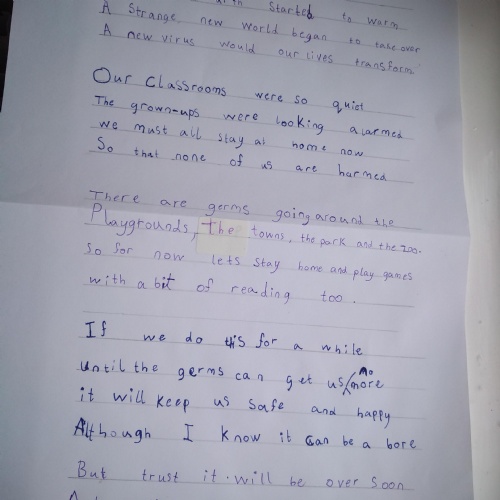 started to warm
A strange, new world began to take over
A new virus would our lives transform
Our classrooms were so quiet
The grown-ups were looking alarmed
we must all stay at home now
So that none of us are harmed
There are germs going around the
Playgrounds, the towns, the park and the zoo.
so for now lets stay home and play games
with a bit of reading too.
If we do this for a while
until the germs can get us no more
it will keep us safe and happy
Although I know it can be a bore
But trust it will be over soon